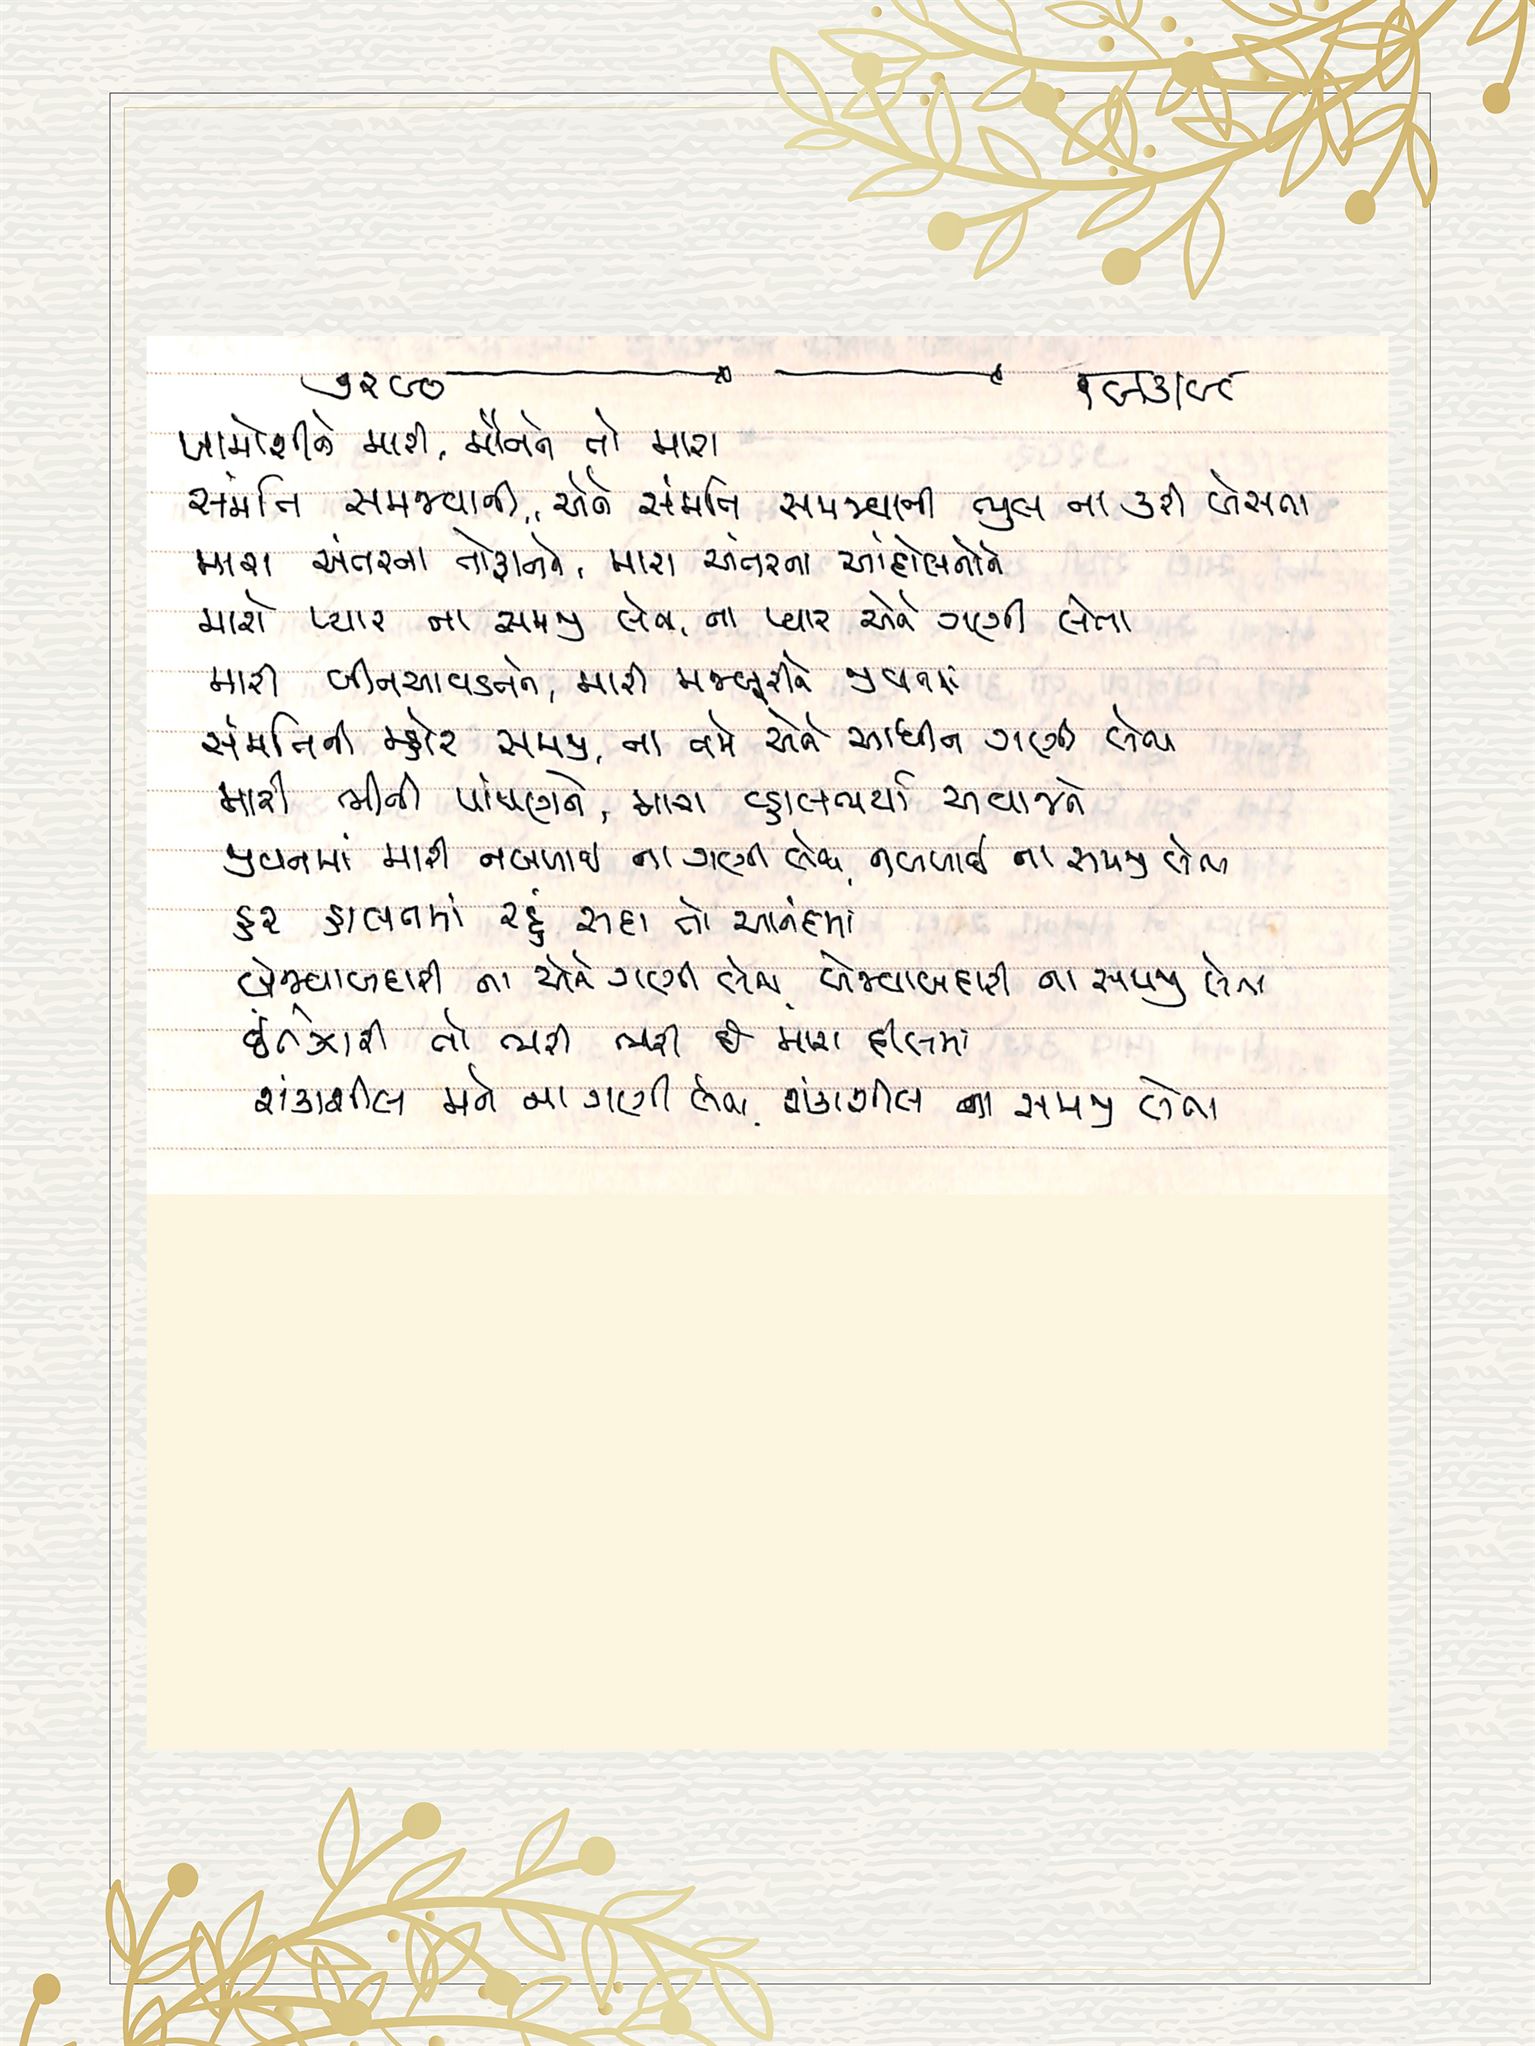 ખામોશીને મારી, મૌનને તો મારા
સંમતિ સમજવાની, એને સંમતિ સમજવાની ભુલ ના કરી બેસતા
મારા અંતરના તોફાનને, મારા અંતરના આંદોલનોને
મારો પ્યાર ના સમજી લેતા, ના પ્યાર એને ગણી લેતા
મારી બીનઆવડતને, મારી મજબૂરીને જીવનમાં
સંમતિની મહોર સમજી, ના તમે એને આધીન ગણી લેતા
મારી ભીની પાંપણને, મારા વ્હાલભર્યા અવાજને
જીવનમાં મારી નબળાઈ ના ગણી લેતા, નબળાઈ ના સમજી લેતા
હર હાલતમાં રહું સદા તો આનંદમાં
બેજવાબદારી ના એને ગણી લેતા, બેજવાબદારી ના સમજી લેતા
ઈંતેજારી તો ભરી ભરી છે મારા દીલમાં
શંકાશીલ મને ના ગણી લેતા, શંકાશીલ ના સમજી લેતા